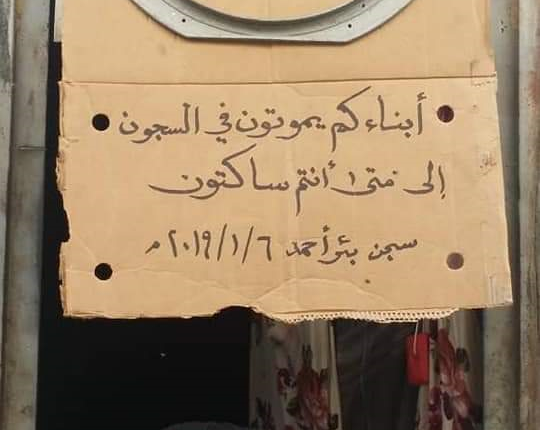 أبناءكم يموتون في السجون
إلى متى أنتم ساكتون
سجن بئر أحمد ٢٠١٩/١/٦م